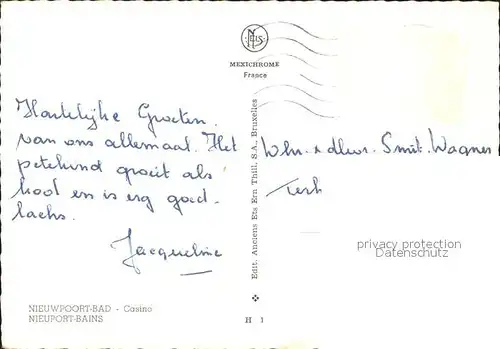 NELS
MEXICHROME
France
Hartelijke Groeten
van ons allemaal. Het
petekind groeit als
kool en is erg goed
lachs.
Jacqueline
Edit. Anciens Ets Ern Thill, S.A. Bruxelles
Smit. Wagner
privacy protection
Datenschutz
NIEUWPOORT-BAD - Casino
NIEUPORT-BAINS
H 1